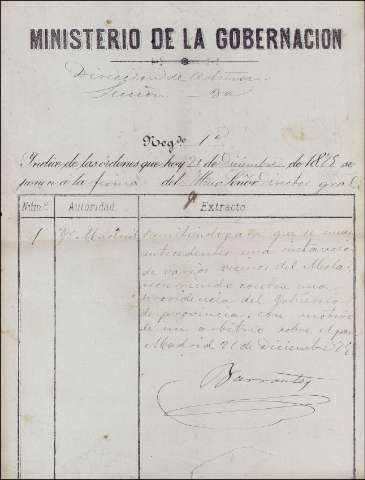 MINISTERIO DE LA GOBERNACION
Direccion de Admon
Seccion 3a
Neg.do 1º
Indice de las órdenes que hoy 21 de Diciembre de 1878 se
ponen a la firma del Ilmo Señor Director gral
Núm.º Autoridad. Extracto
1 Gr Madrid Remitiendo para que se unan
antecedentes una instancia
de varios vecinos del Molar
contra una
providencia del Gobierno
de provincia, con motivo
de un arbitrio sobre el pan
Madrid 21 de Diciembre 78
Barrantes